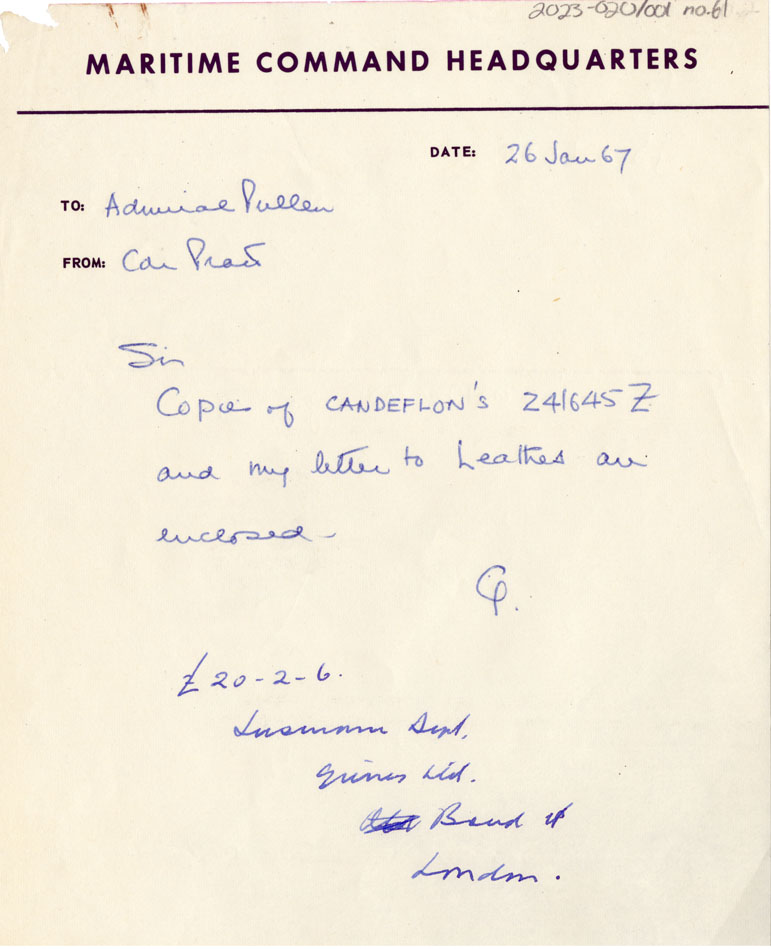 2023-020/001 no.61
MARITIME COMMAND HEADQUARTERS
DATE: 26 Jan 67
TO: Admiral Pullen
FROM: Cdr Pratt
Sir
Copies of CANDEFLON'S 241645Z
and my letter to Leathes are
enclosed -
CP.
£20-2-6.
Dept,
Ltd.
Bond St
London.